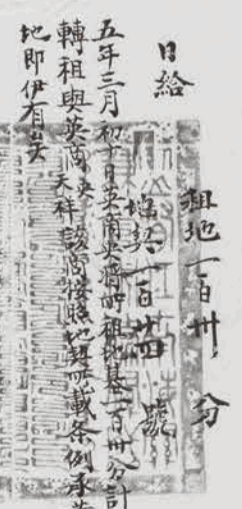 租地一百卅分
日給
地契一百卅四號
五年三月初十日英商央將所租地基一百卅分計
轉租與英商央天祥該商按照地契所載条例承
地即伊有矣